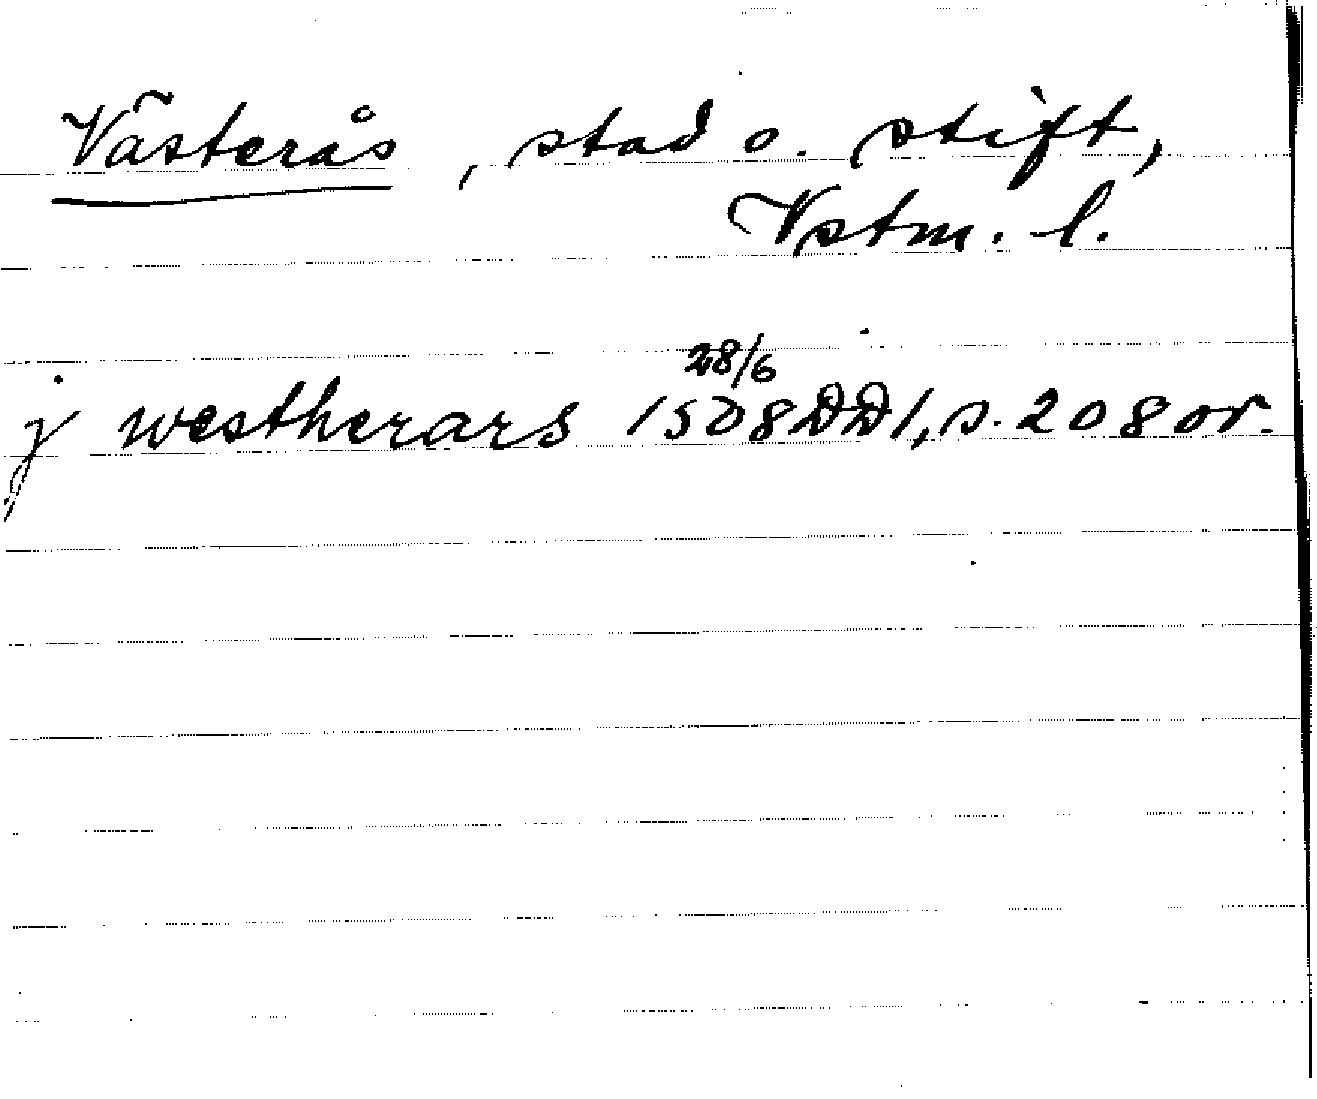 Västerås, stad o. stift,
Vstm. l.
28/6
j westherars 1508 DD1, s. 208 or.